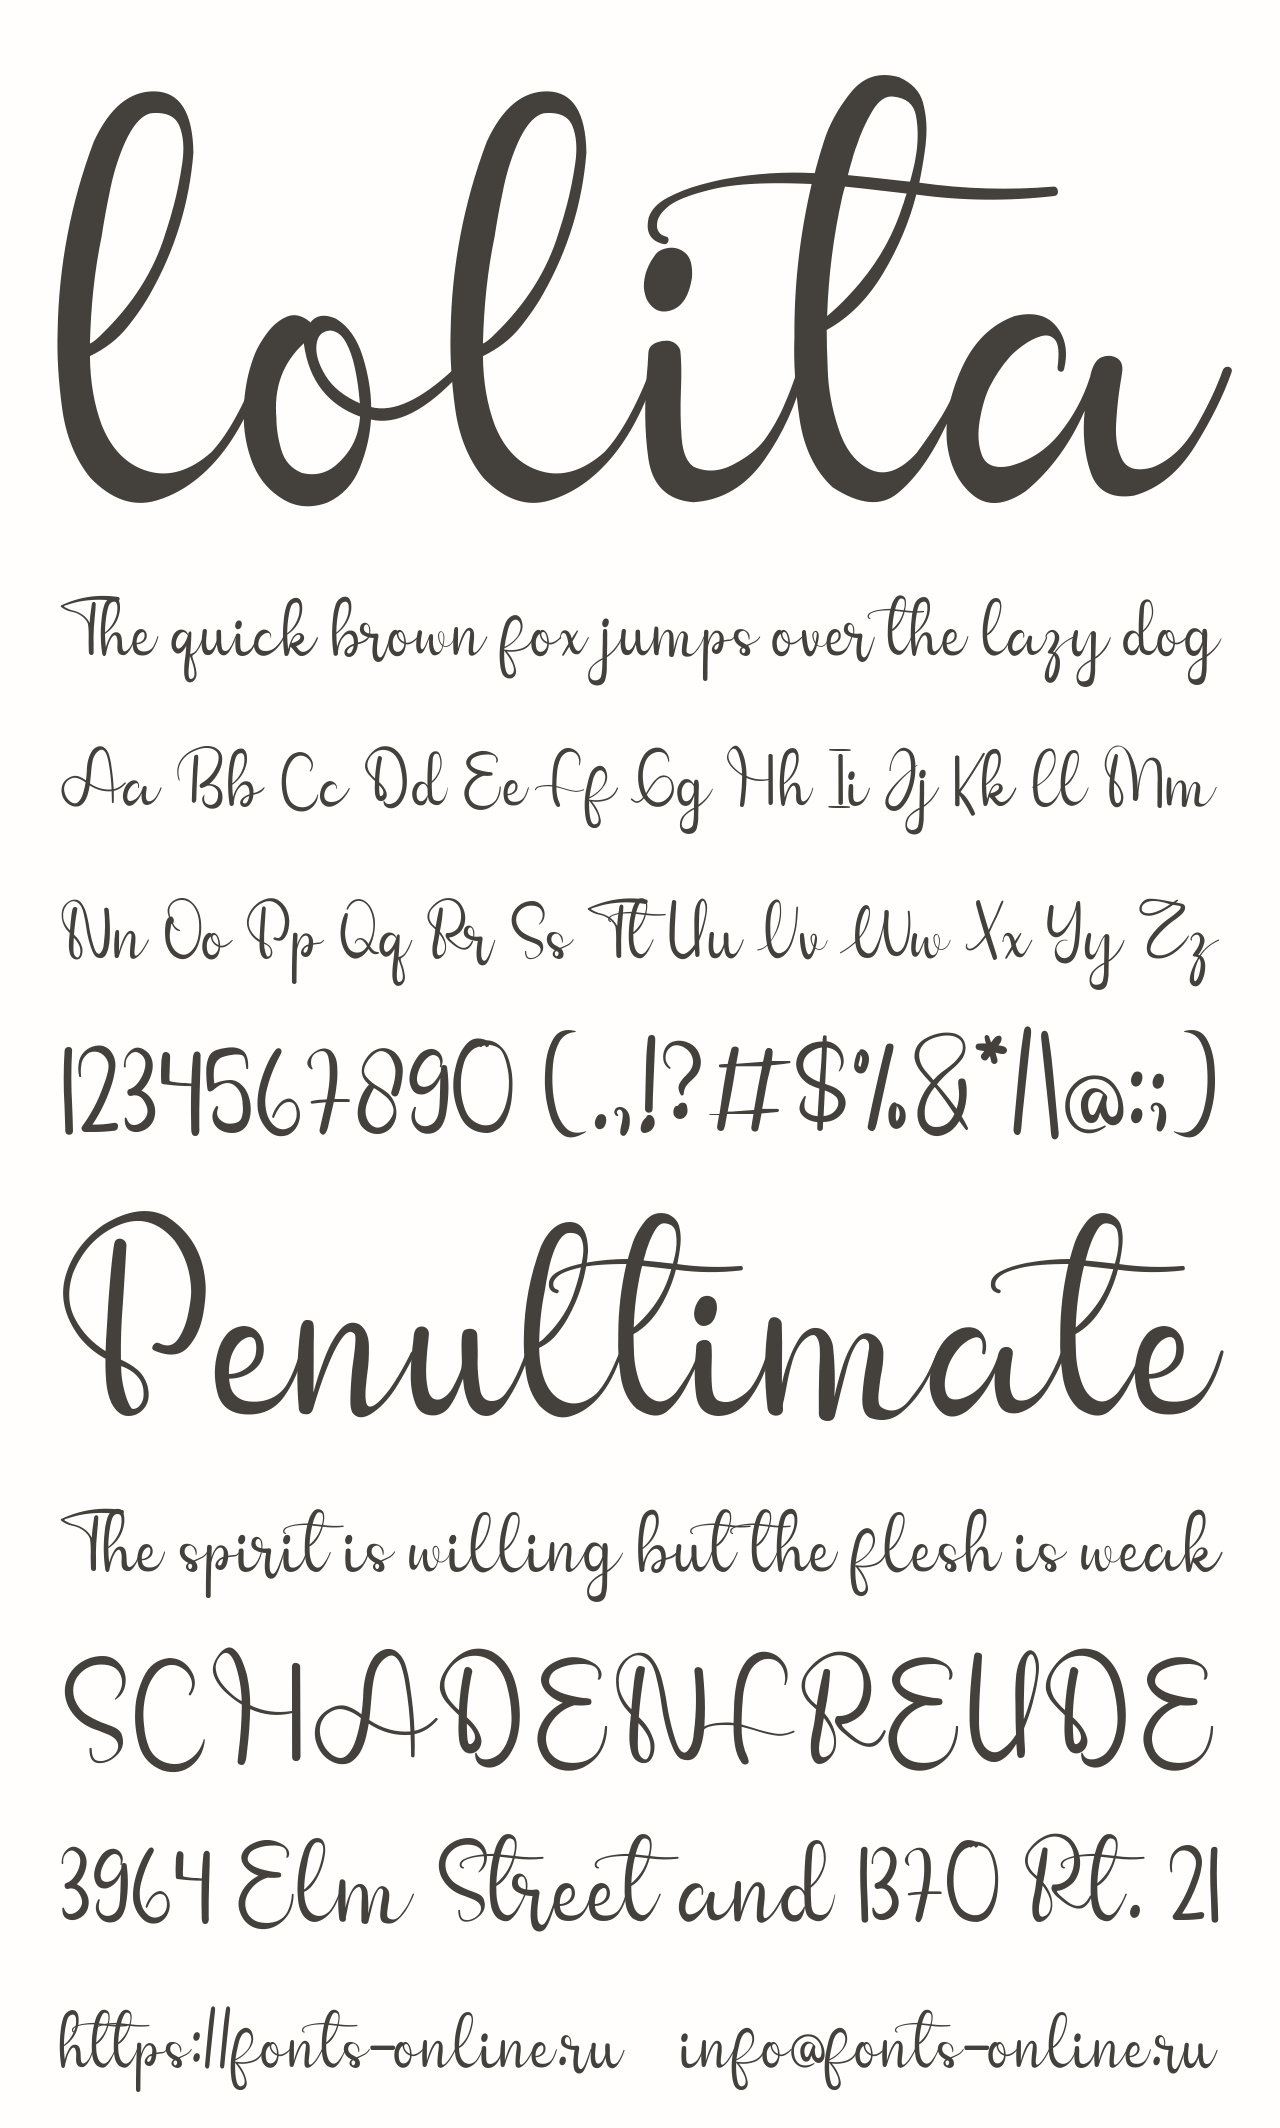 lolita
The quick brown fox jumps over the lazy dog
Aa Bb Cc Dd Ee Ff Gg Hh Ii Jj Kk Ll Mm
Nn Oo Pp Qq Rr Ss Tt Uu Vv Ww Xx Yy Zz
1234567890 (.,!?#$%&*/\@:;)
Penultimate
The spirit is willing but the flesh is weak
SCHADENFREUDE
3964 Elm Street and 1370 Rt. 21
https://fonts-online.ru info@fonts-online.ru